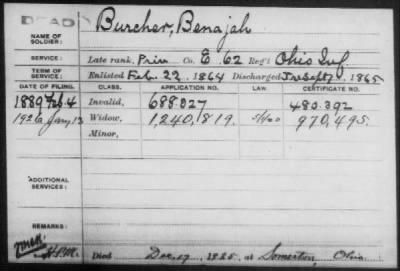 DEAD
NAME OF SOLDIER: Burcher, Benajah
SERVICE: Late rank, Priv Co. E. 62 Reg't Ohio Inf.
TERM OF SERVICE: Enlisted Feb. 22, 1864 Discharged Sept 7, 1865
DATE OF FILING. CLASS. APPLICATION NO. LAW. CERTIFICATE NO.
1889 Feb. 4 Invalid, 688.027 480.392
1926 Jany 13 Widow, 1,240,819. 970,495.
Minor,
ADDITIONAL SERVICES:
REMARKS:
Died Dec. 17, 1925, at Somerton Ohio